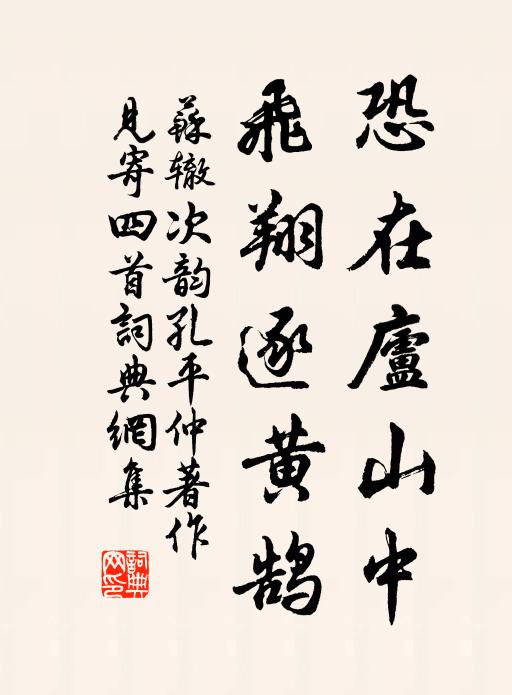 恐在廬山中
飛翔逐黄鹄
蘇辙次韵孔平仲著作
見寄四首詞典網集
詞典网印